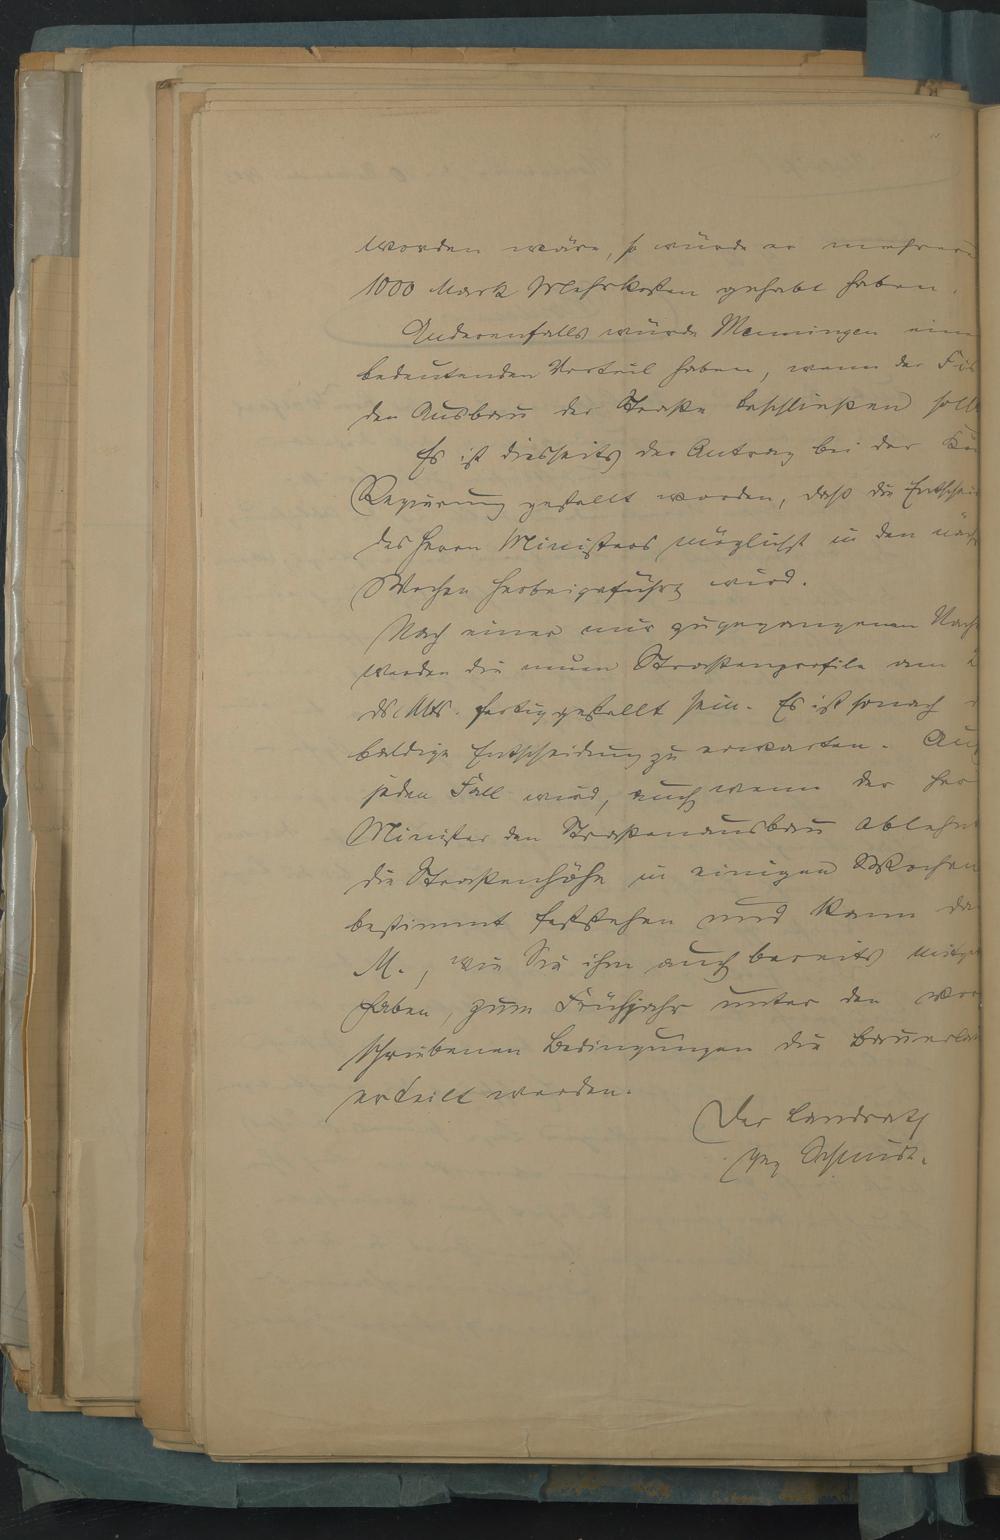 worden wäre, so würde er mehrere
1000 Mark Mehrkosten gehabt haben.
Anderenfalls würde Menningen eine
bedeutenden Vorteil haben, wenn der Fis
den Ausbau der Straße beschließen soll
Es ist diesseits der Antrag bei der Kö
Regierung gestellt worden, daß die Entschei
des Herrn Ministers möglichst in den näch
Wochen herbeigeführt wird.
Nach einer mir zugegangenen Nach
werden die neuen Straßenprofile am
ds. Mts. fertig gestellt sein. Es ist sonach
baldige Entscheidung zu erwarten. Auf
jeden Fall wird, auch wenn der Her
Minister den Straßenausbau ablehnt
die Straßenhöhe in einigen Wochen
bestimmt feststehen und kann da
M., wie Sie ihm auch bereits mitge
haben, zum Frühjahr unter den vor
schriebenen Bedingungen die Bauerlau
erteilt werden.
Der Landrath
gez Schmidt.